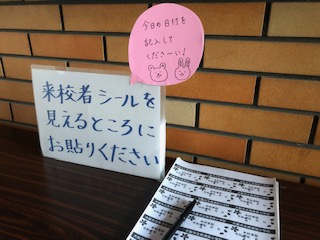 今日の日付を
記入して
くださーい!
来校者シールを
見えるところに
お貼りください